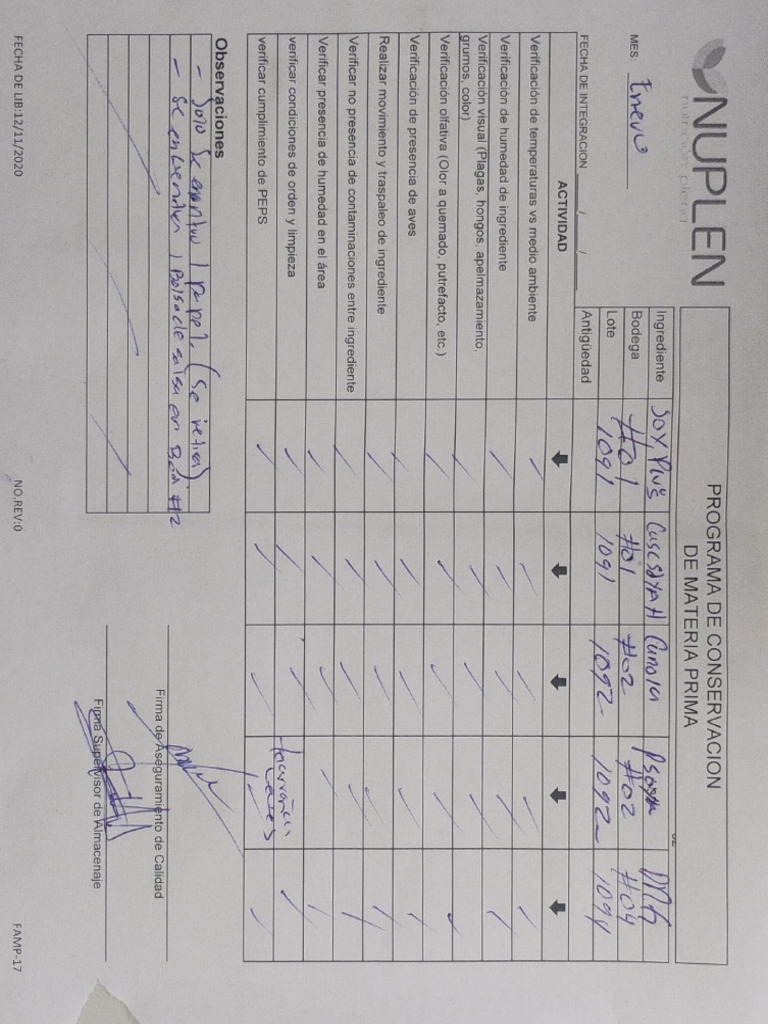 NUPLEN
nutrición plena
PROGRAMA DE CONSERVACION
DE MATERIA PRIMA
MES: Enero
FECHA DE INTEGRACION ___/___/___
Ingrediente Soy Plus Cascarilla Canola
Bodega #01 #01 #02 #02 #04
Lote 1091 1091 1092 1092 1094
Antigüedad
ACTIVIDAD ⬇ ⬇ ⬇ ⬇ ⬇
Verificación de temperaturas vs medio ambiente ✓ ✓ ✓ ✓ ✓
Verificación de humedad de ingrediente ✓ ✓ ✓ ✓ ✓
Verificación visual (Plagas, hongos, apelmazamiento,
grumos, color) ✓ ✓ ✓ ✓ ✓
Verificación olfativa (Olor a quemado, putrefacto, etc.) ✓ ✓ ✓ ✓ ✓
Verificación de presencia de aves ✓ ✓ ✓ ✓ ✓
Realizar movimiento y traspaleo de ingrediente ✓ ✓ ✓ ✓ ✓
Verificar no presencia de contaminaciones entre ingrediente ✓ ✓ ✓ ✓ ✓
Verificar presencia de humedad en el área ✓ ✓ ✓ ✓ ✓
verificar condiciones de orden y limpieza ✓ ✓ ✓ ✓
verificar cumplimiento de PEPS ✓ ✓ ✓ ✓ ✓
Observaciones
- Solo se encontro 1 papel. (Se retira)
- Se encuentran 1 Bolsa de salsa en #2
Firma de Aseguramiento de Calidad
Firma Supervisor de Almacenaje
FECHA DE LIB:12/11/2020
NO.REV:0
FAMP-17